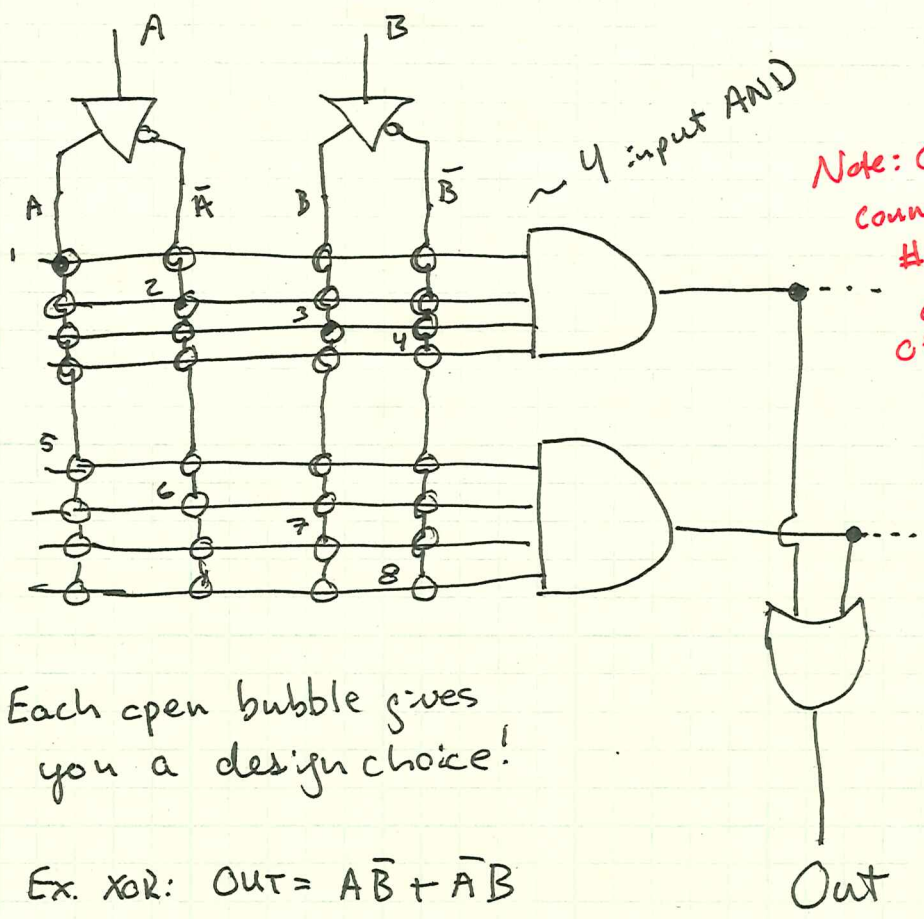 A
B
~ 4 input AND
Note:
Conn
#
A
Ā
B
B̄
1
2
3
4
5
6
7
8
Each open bubble gives
you a design choice!
Ex. XOR: OUT = AB̄ + ĀB
Out